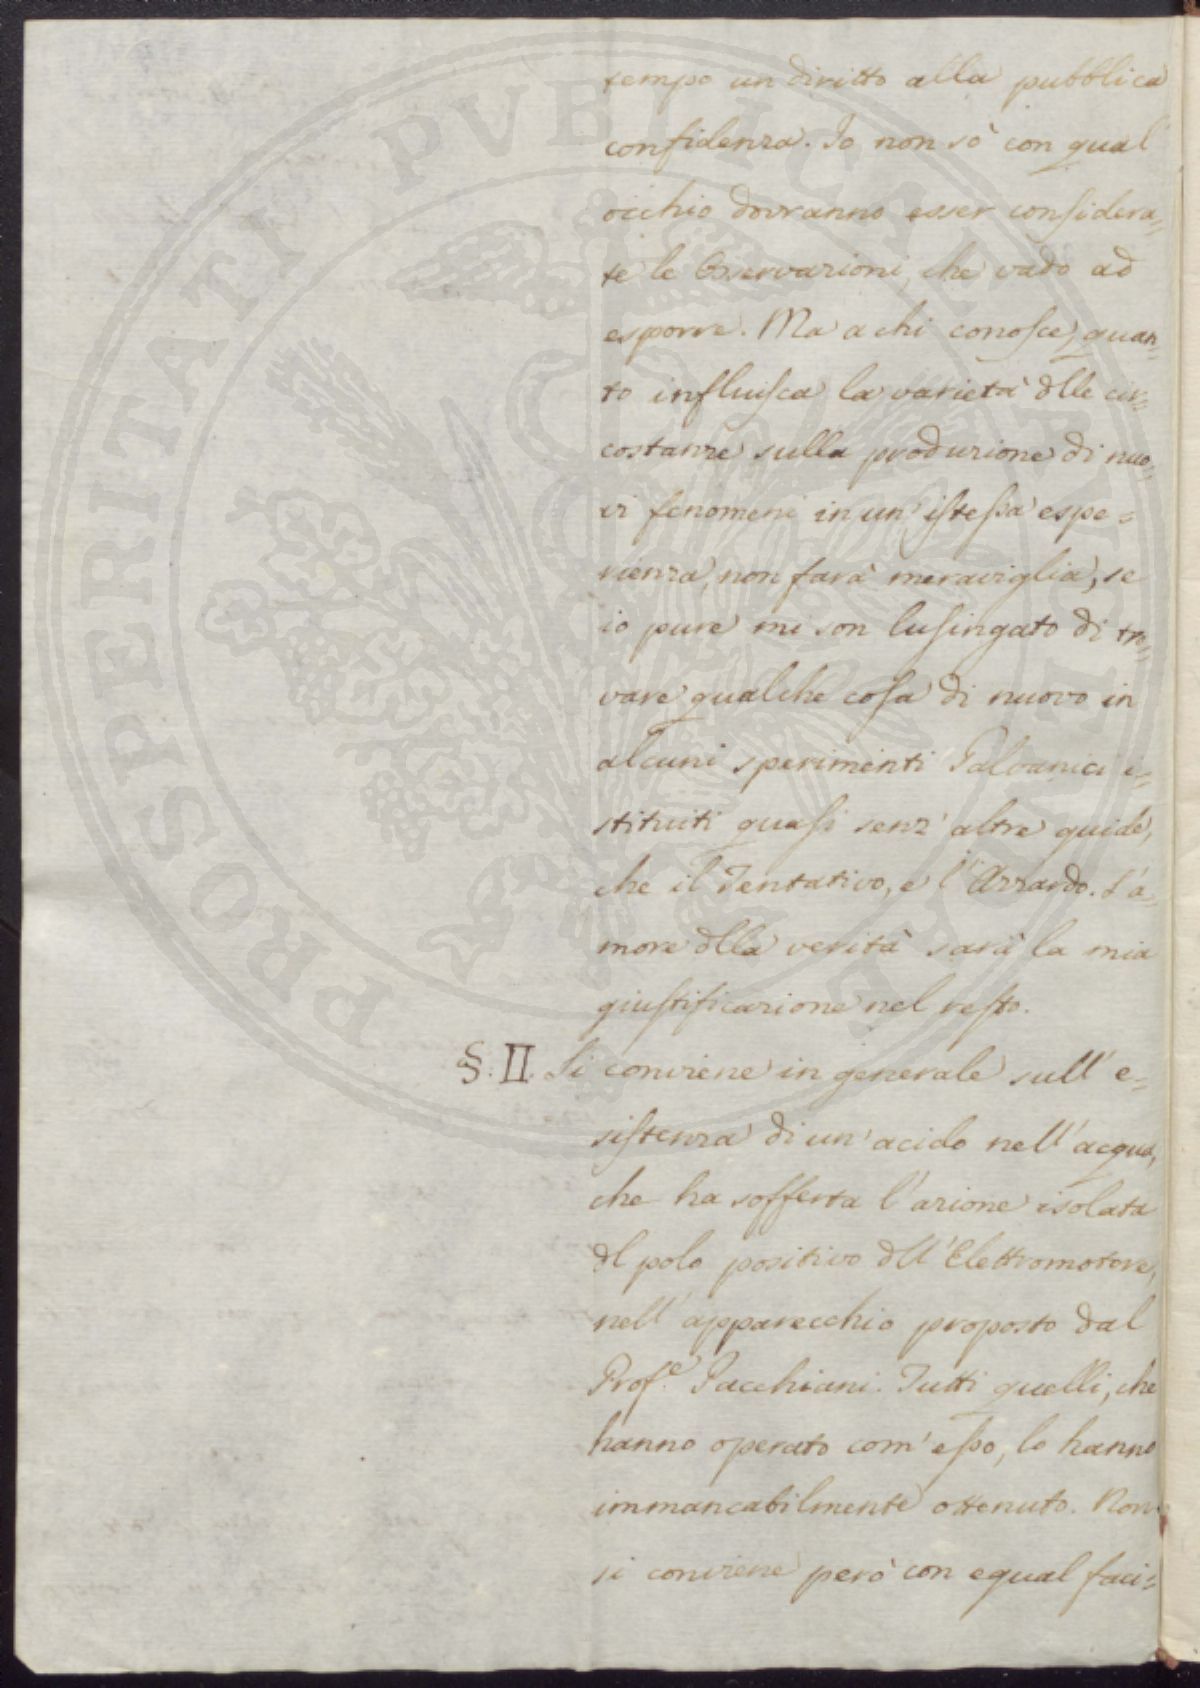 tempo un diritto alla pubblica
confidenza. Io non sò con qual
occhio dovranno esser considera=
te le Osservazioni, che vado ad
esporre. Ma a chi conosce, quan=
to influisca la varietà dlle cir=
costanze sulla produzione di nuo=
vi fenomeni in un' istessa espe=
rienza, non farà meraviglia, se
io pure mi son lusingato di tro=
vare qualche cosa di nuovo in
alcuni sperimenti Galvanici i=
stituiti quasi senz' altre guide,
che il Tentativo, e l' Azzardo. L'a=
more dlla verità sarà la mia
giustificazione nel resto.
§. II. Si conviene in generale sull' e=
sistenza di un' acido nell' acqua,
che ha sofferta l' azione isolata
dl polo positivo dll' Elettromotore,
nell' apparecchio proposto dal
Prof.e Pacchiani. Tutti quelli, che
hanno operato com' esso, lo hanno
immancabilmente ottenuto. Non
si conviene però con egual faci=
PROSPERITATI PVBLICAE